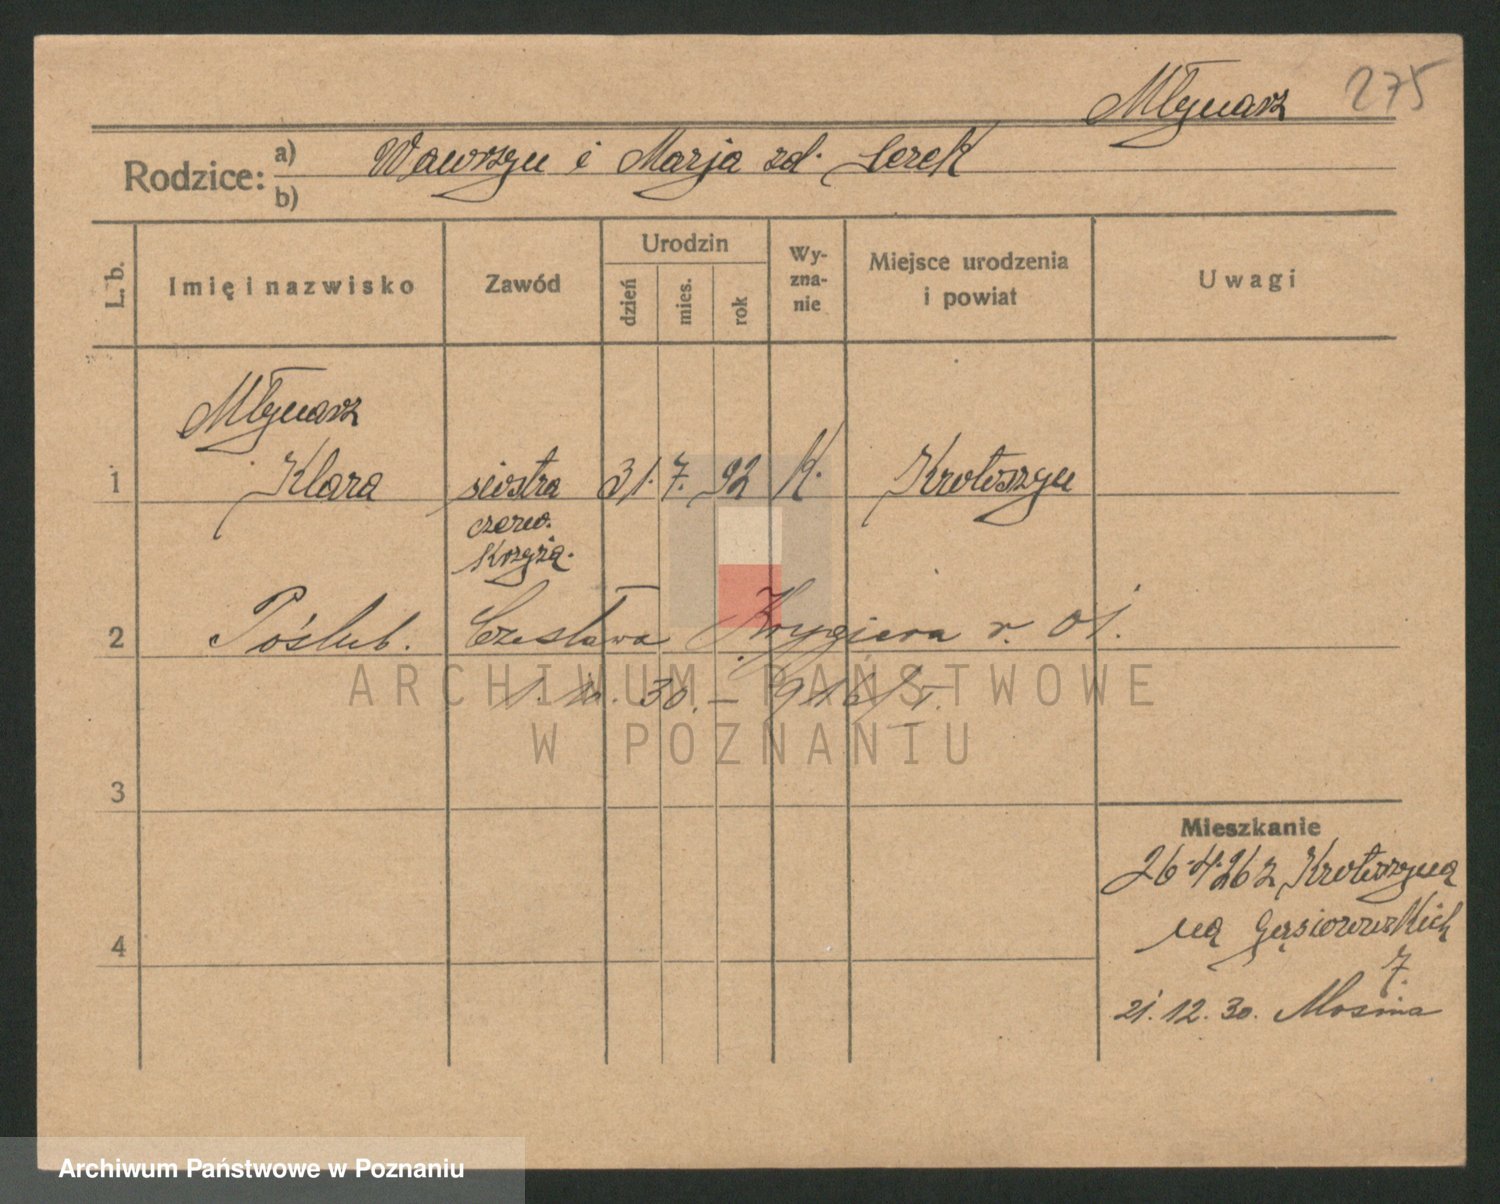 Młynarz 275
Rodzice: a) b) Wawrzyn i Marja zd. Lerek
L. b. Imię i nazwisko Zawód Urodzin dzień mies. rok Wy-zna-nie Miejsce urodzenia i powiat Uwagi
Młynarz
1 Klara siostra 31. 7. 92 K. Krotoszyn
czerw.
Krzyża.
2 Poślub. Czesława Krygiera r. 01.
30. – 916/I.
ARCHIWUM PAŃSTWOWE
W POZNANIU
3
Mieszkanie
26.4.26 z Krotoszyna
4 na Gąsiorowskich
7.
21. 12. 30. Mosina
Archiwum Państwowe w Poznaniu